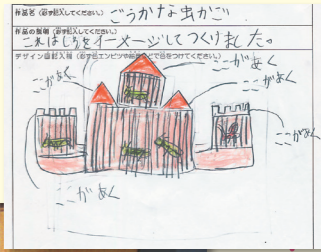 作品名（必ず記入してください。） ごうかな虫かご
作品の説明（必ず記入してください。）
これはしろをイーメージしてつくりました。
デザイン画記入欄（必ず色エンピツや絵の具などで色をつけてください。）
ここがあく
ここがあく
ここがあく
ここがあく
ここがあく